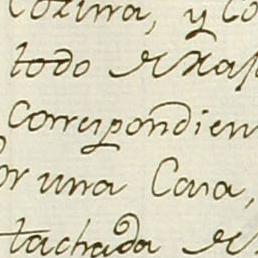 Cozina, y Co
todo
Correspondien
or una Casa,
tachada de